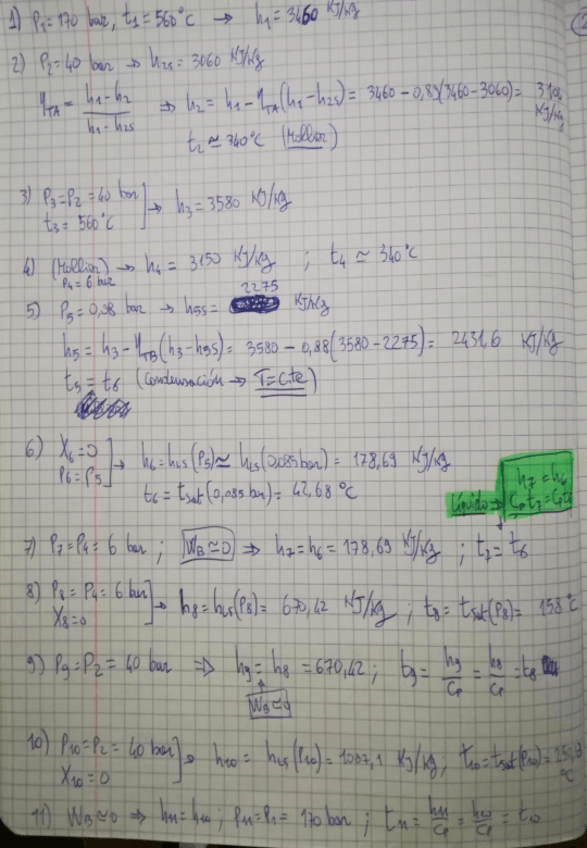 1) P₁=170 bar, t₁=560°C → h₁=3460 KJ/kg
2) P₂=40 bar → h₂s=3060 KJ/kg
ηTA = (h₁-h₂)/(h₁-h₂s) ⇒ h₂ = h₁-ηTA(h₁-h₂s) = 3460-0,88(3460-3060) = 3108 KJ/kg
t₂ ≃ 340°C (Mollier)
3) P₃=P₂=40 bar
t₃= 560°C → h₃=3580 KJ/kg
4) (Mollier) → h₄ = 3150 KJ/kg ; t₄ ≃ 340°C
P₄=6 bar
2275
5) P₅=0,08 bar → h₅s= KJ/kg
h₅ = h₃-ηTB(h₃-h₅s) = 3580-0,88(3580-2275) = 2431,6 KJ/kg
t₅ = t₆ (Condensación → T=cte)
6) X₆=0
P₆=P₅ → h₆=hLS(P₅)≃hLS(0,085 bar) = 178,69 KJ/kg
t₆ = tsat(0,085 bar) = 42,68 °C
h₇=h₆
líquido → Cp t₇=Cp t₆
7) P₇=P₄=6 bar ; WB≃0 ⇒ h₇=h₆=178,69 KJ/kg ; t₇=t₆
8) P₈=P₄=6 bar
X₈=0 → h₈=hLS(P₈)= 670,42 KJ/kg ; t₈=tsat(P₈)= 158°C
9) P₉=P₂=40 bar ⇒ h₉=h₈=670,42 ; t₉=h₉/Cp=h₈/Cp=t₈
WB≃0
10) P₁₀=P₂=40 bar
X₁₀=0 → h₁₀ = hLS(P₁₀)=1087,1 KJ/kg, t₁₀=tsat(P₁₀)= °C
11) WB≃0 ⇒ h₁₁=h₁₀ ; P₁₁=P₁= 170 bar ; t₁₁=h₁₁/Cp=h₁₀/Cp=t₁₀